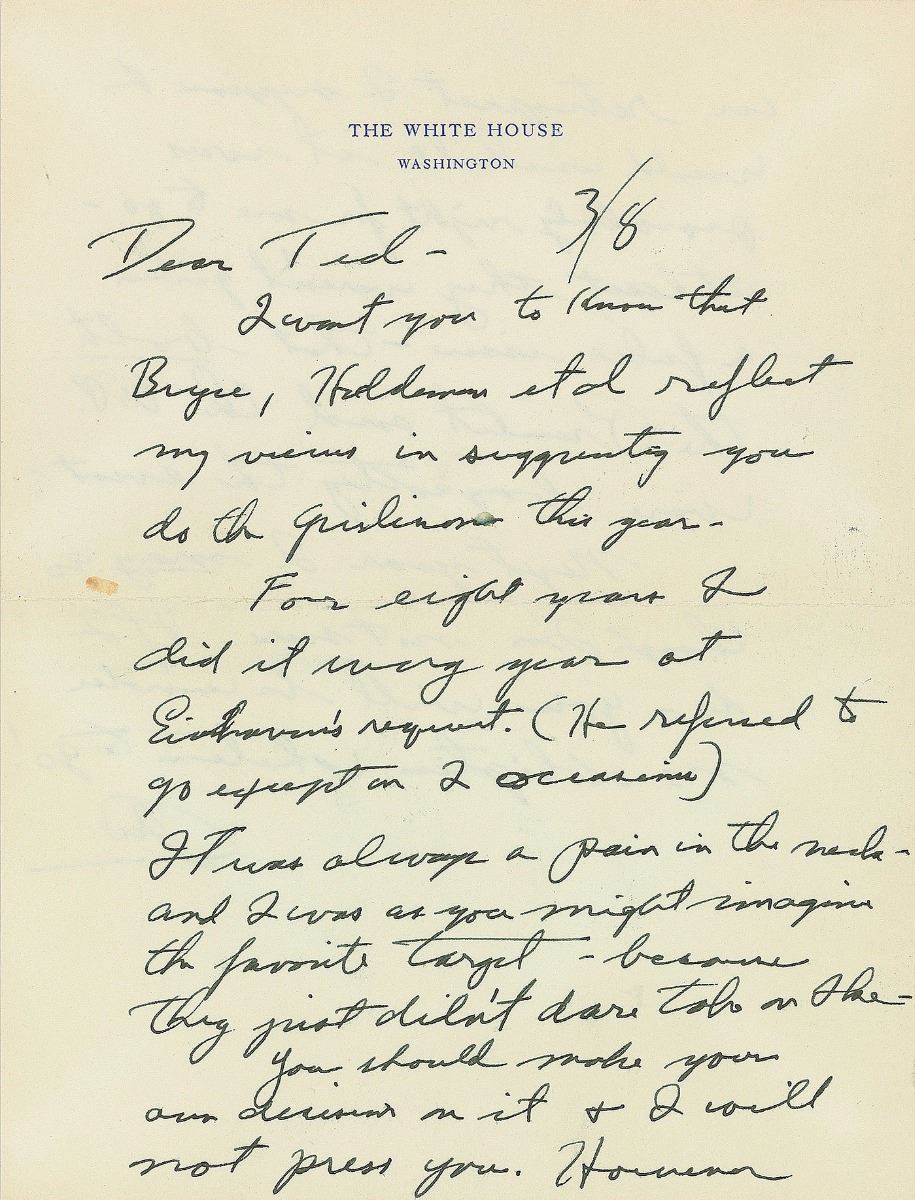 THE WHITE HOUSE
WASHINGTON
3/8
Dear Ted -
I want you to know that
Bryce, Haldeman et al reflect
my views in suggesting you
do the Gridiron this year.
For eight years I
did it every year at
Eisenhower's request. (He refused to
go except on 2 occasions)
It was always a pain in the neck -
and I was as you might imagine
the favorite target - because
they just didn't dare take on Ike -
You should make your
own decision on it & I will
not press you. However